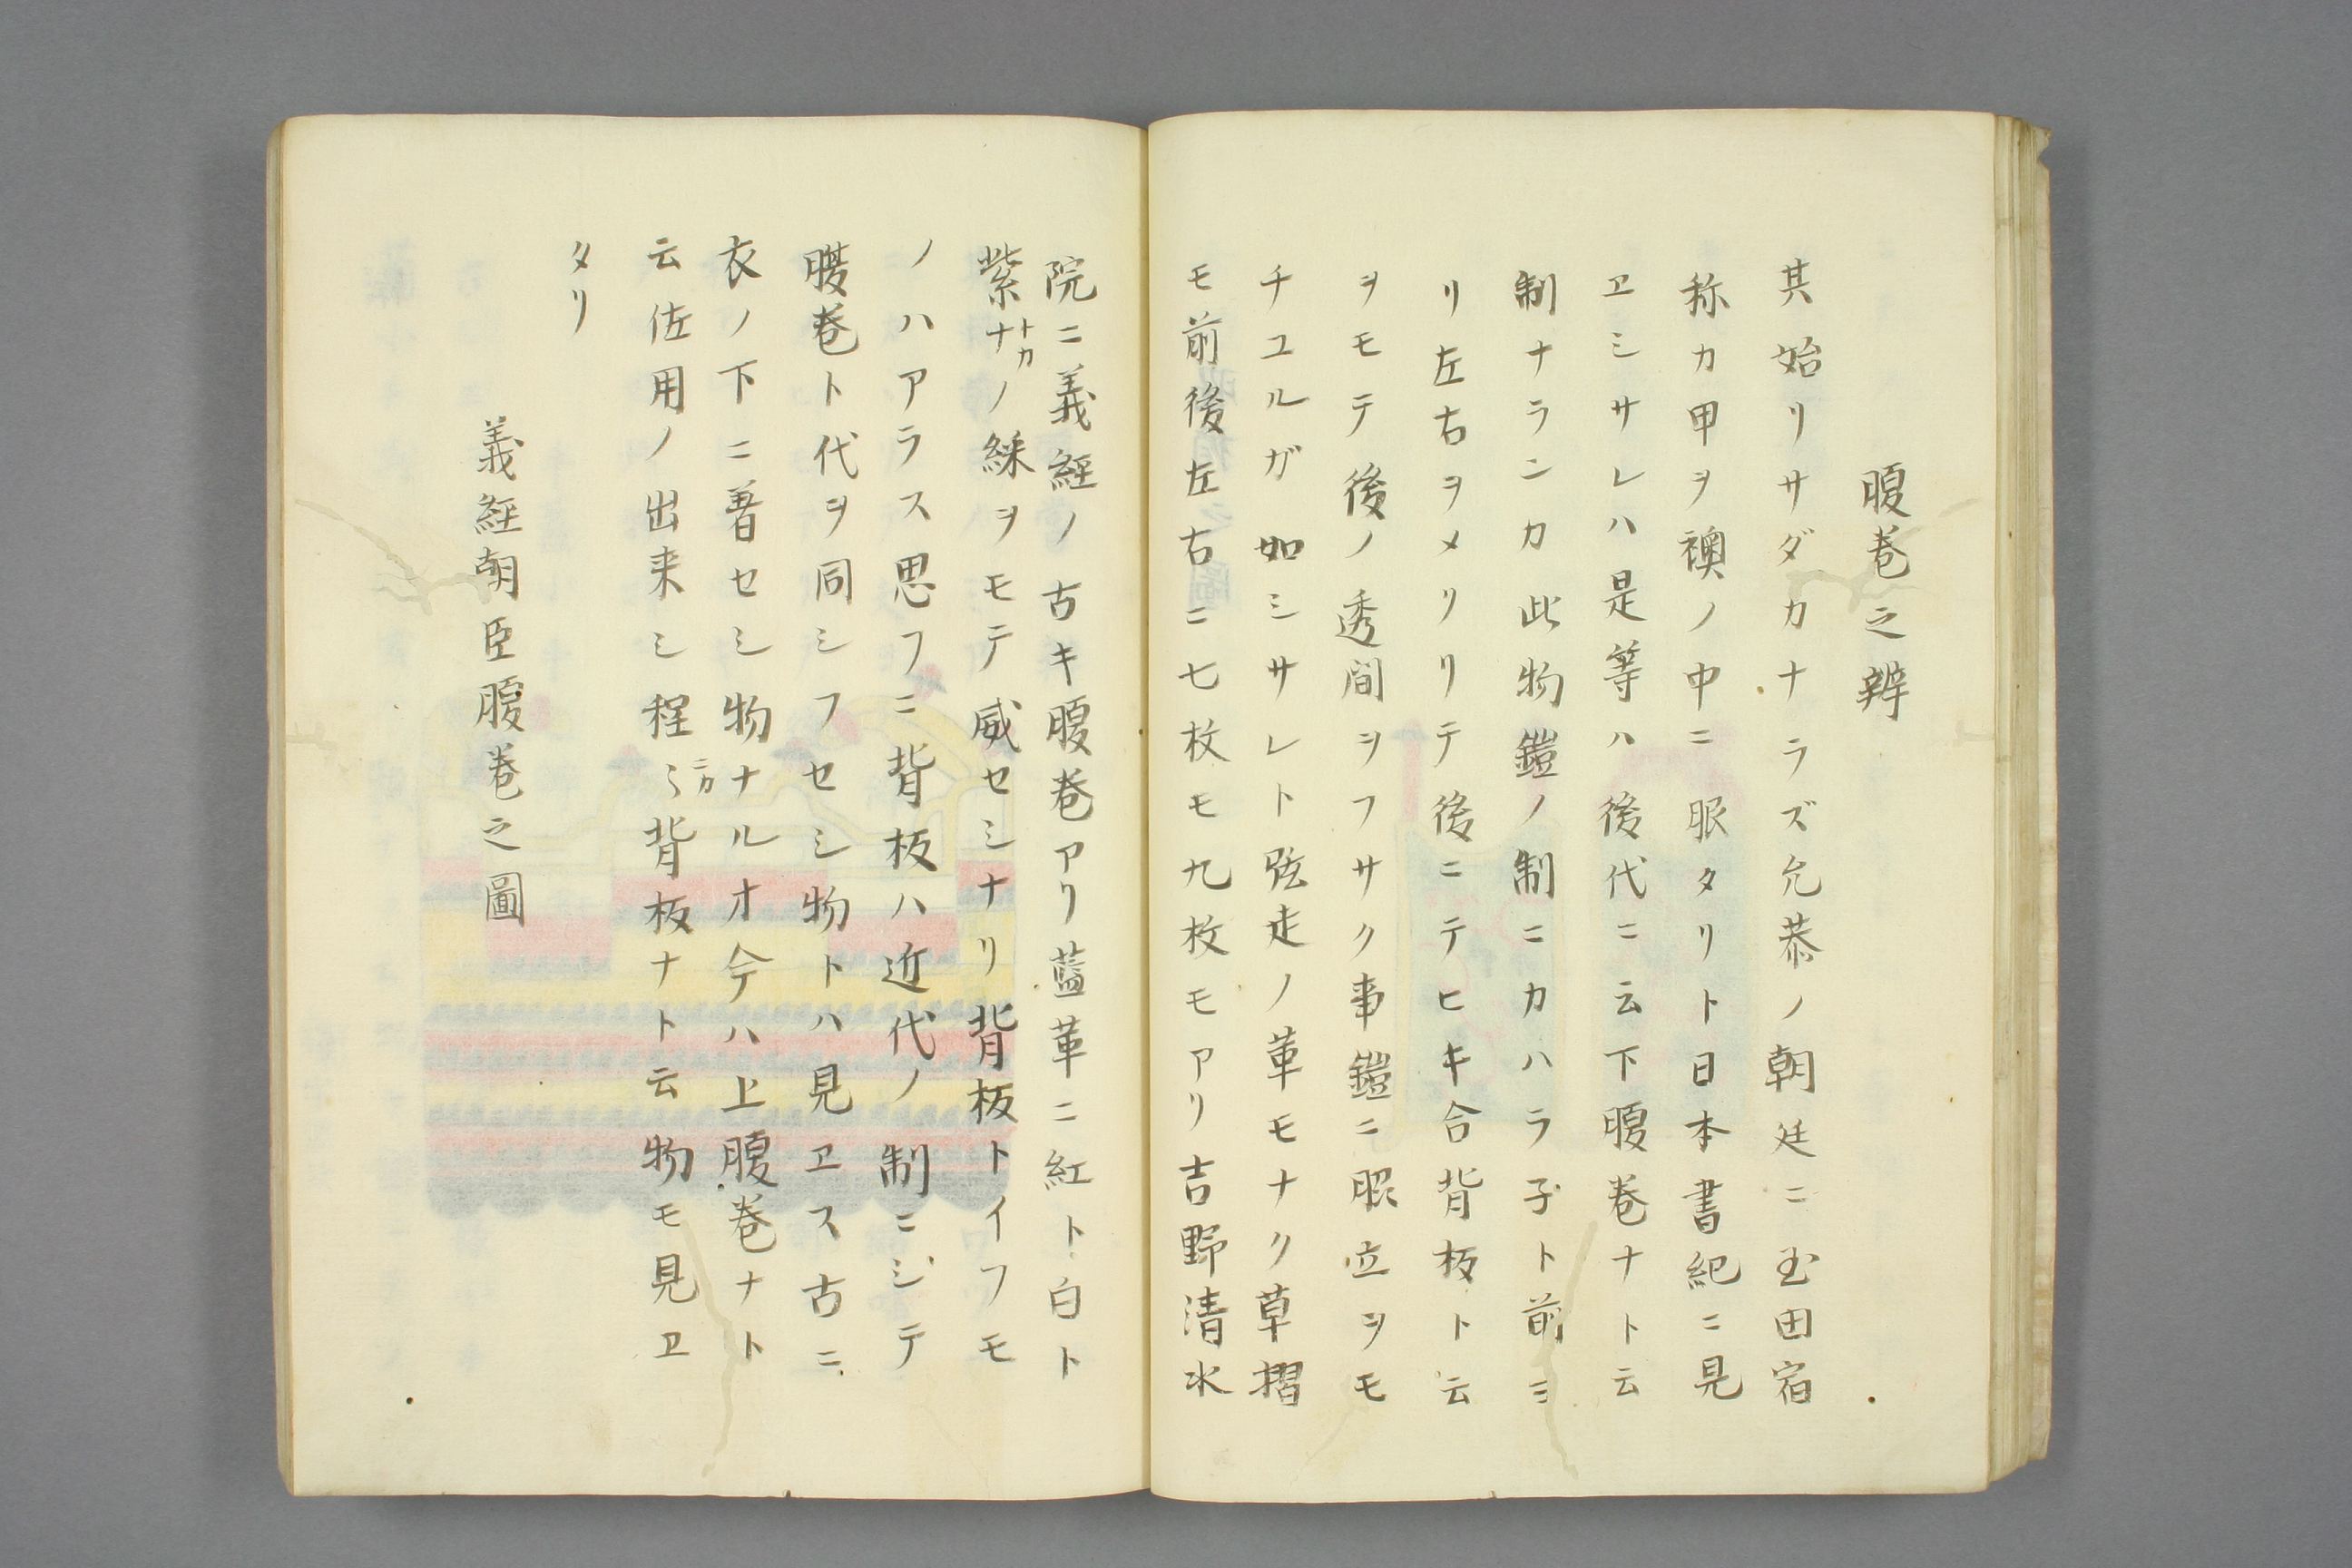 腹巻之辨
其始リサダカナラズ允恭ノ朝廷ニ玉田宿
称カ甲ヲ襖ノ中ニ服タリト日本書紀ニ見
ヱシサレハ是等ハ後代ニ云下腹巻ナト云
制ナランカ此物鎧ノ制ニカハラ子ト前ヨ
リ左右ヲメクリテ後ニテヒキ合背板ト云
ヲモテ後ノ透間ヲフサク事鎧ニ脇立ヲモ
チユルガ如シサレト弦走ノ革モナク草摺
モ前後左右ニ七枚モ九枚モアリ吉野清水
院ニ義経ノ古キ腹巻アリ藍革ニ紅ト白ト
紫ナトカノ綵ヲモテ威セシナリ背板トイフモ
ノハアラス思フニ背板ハ近代ノ制ニシテ
腹巻ト代ヲ同シフセシ物トハ見ヱス古ニ
衣ノ下ニ着セシ物ナルオ今ハ上腹巻ナト
云佐用ノ出来シ程ニカ背板ナト云物モ見ヱ
タリ
義経朝臣腹巻之圖